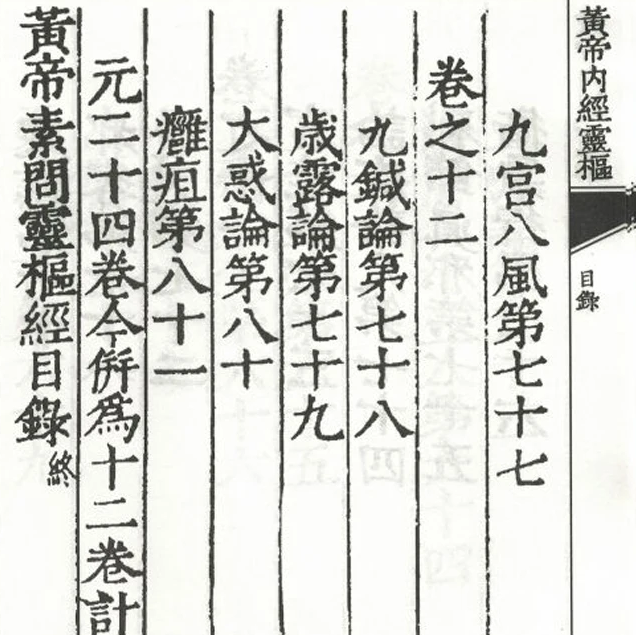 黃帝內經靈樞
目錄
九宮八風第七十七
卷之十二
九鍼論第七十八
歲露論第七十九
大惑論第八十
癰疽第八十一
元二十四卷今併爲十二卷計
黃帝素問靈樞經目錄終